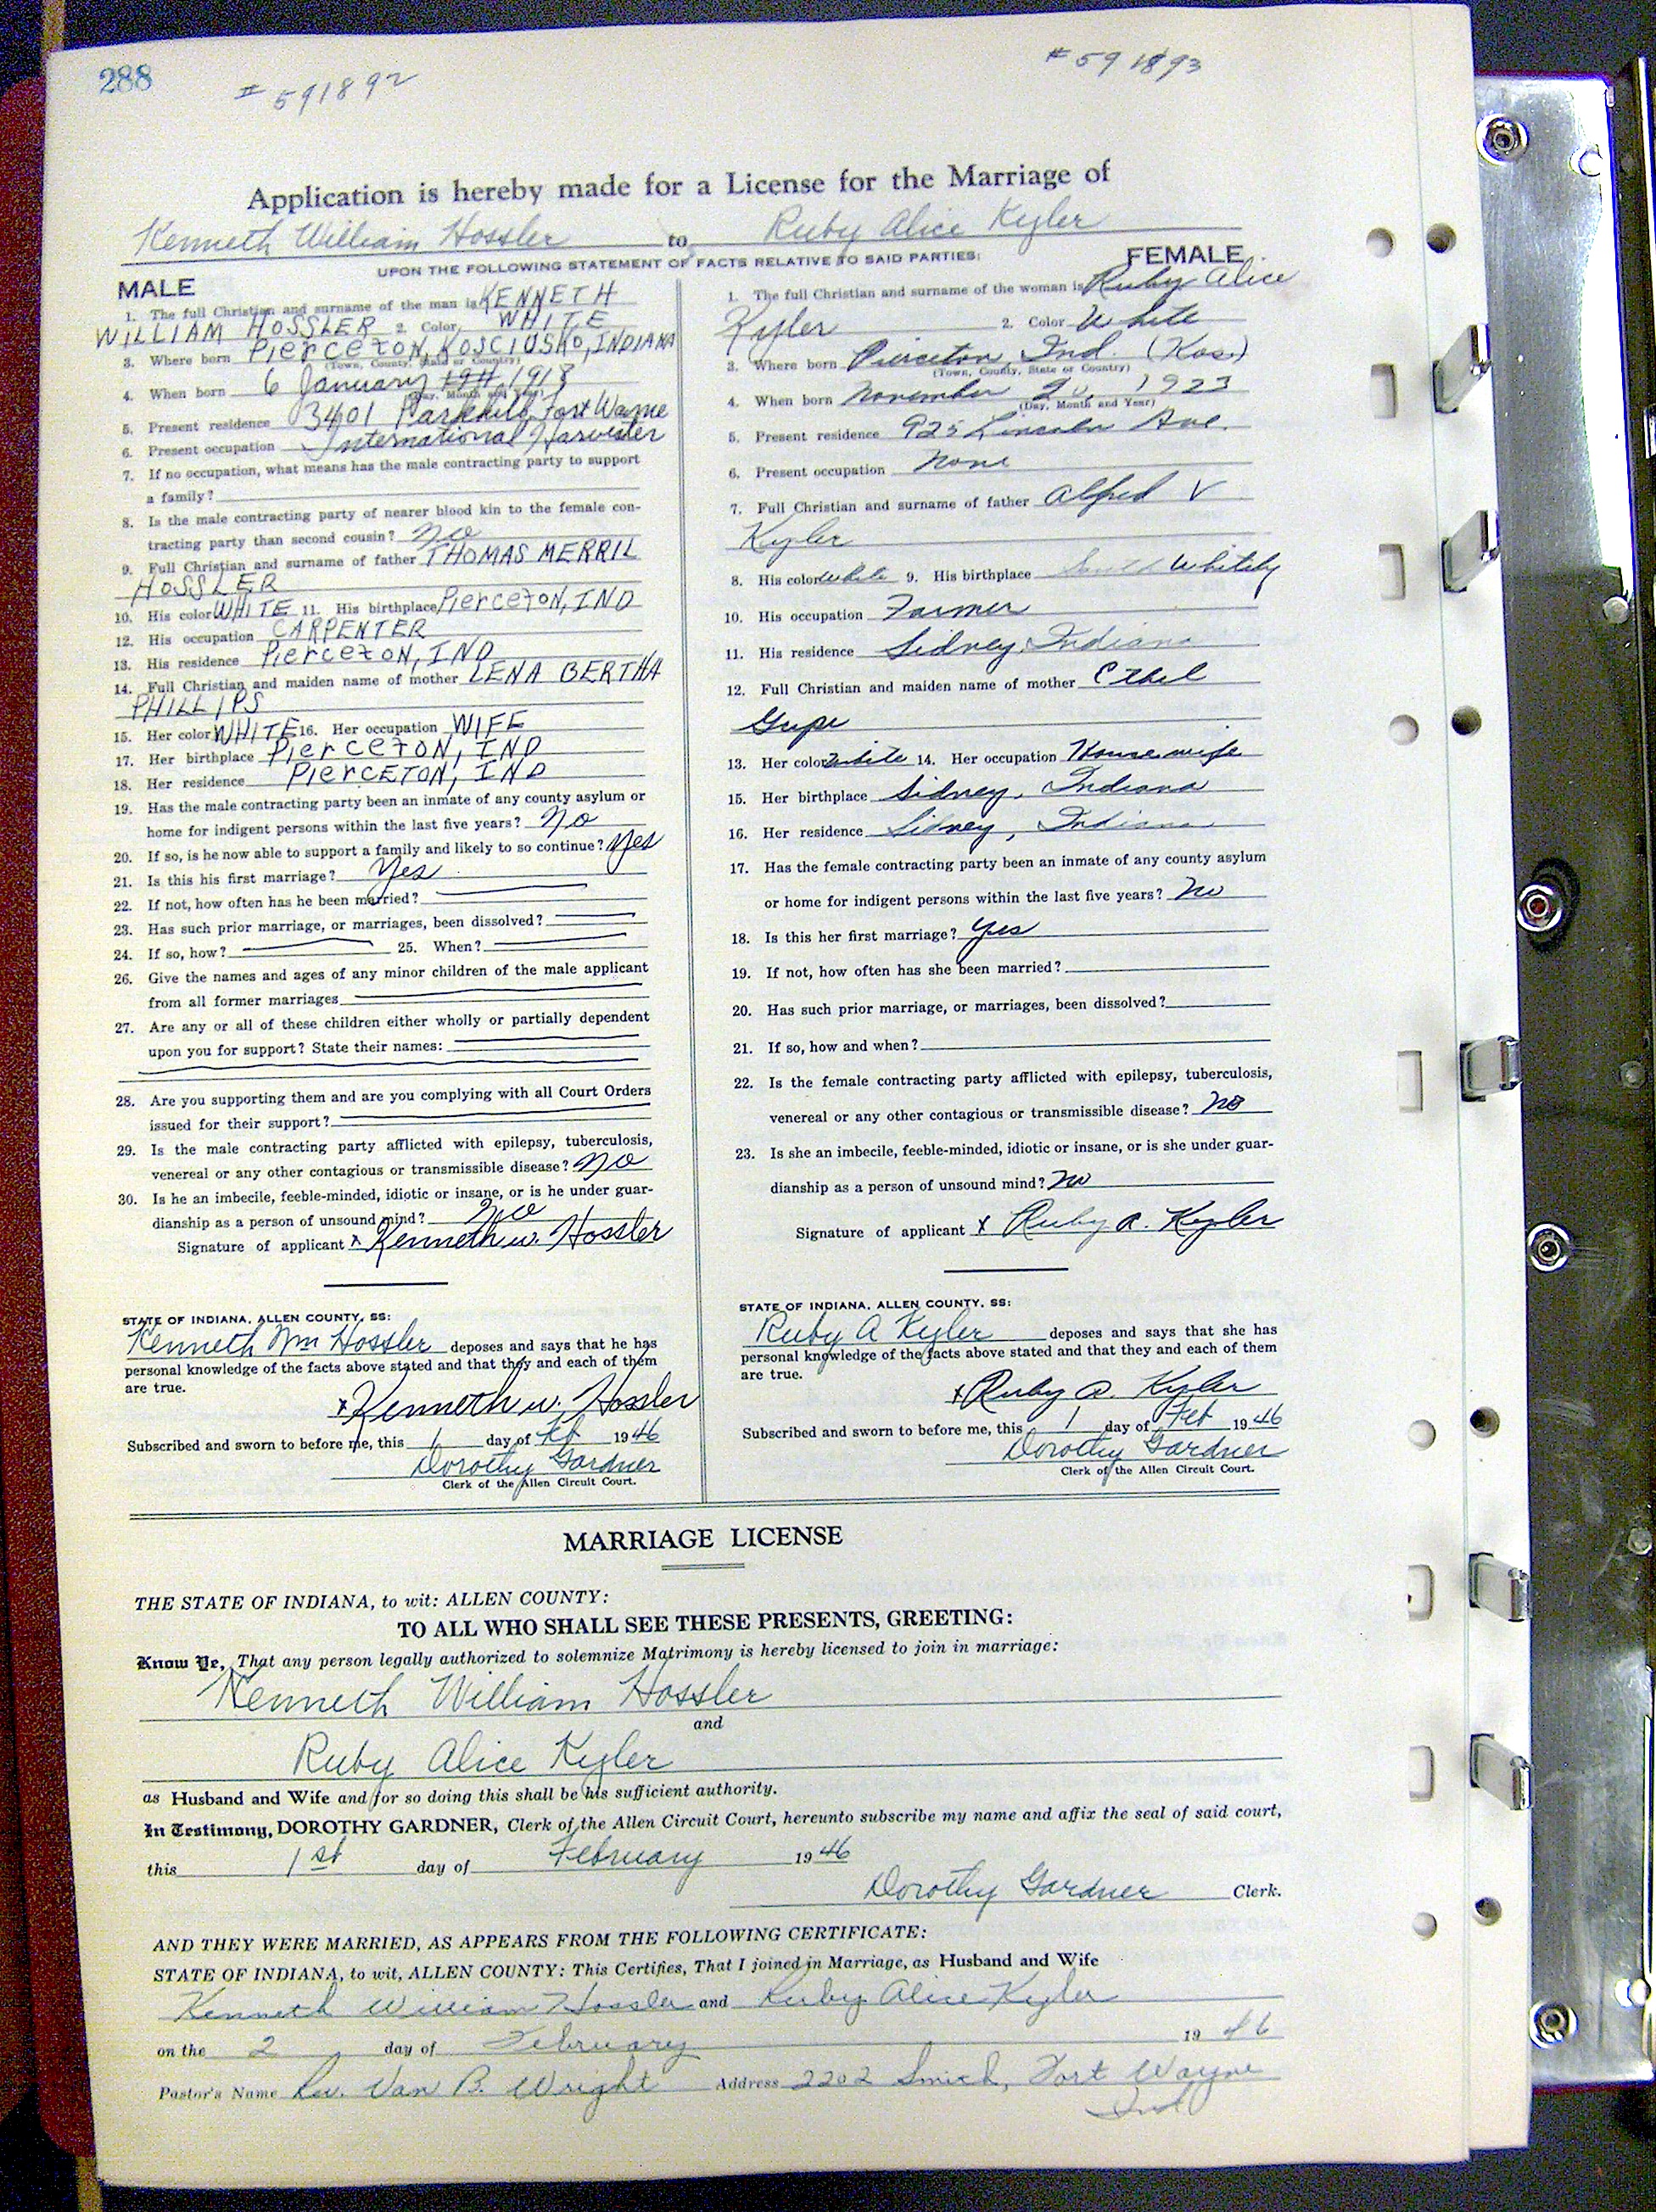 288
# 591892
# 591893
Application is hereby made for a License for the Marriage of
Kenneth William Hossler to Ruby Alice Kyler
UPON THE FOLLOWING STATEMENT OF FACTS RELATIVE TO SAID PARTIES:
MALE
1. The full Christian and surname of the man is KENNETH
WILLIAM HOSSLER 2. Color WHITE
3. Where born PIERCETON, KOSCIUSKO, INDIANA
(Town, County, State or Country)
4. When born 6 January 1911 1918
(Day, Month and Year)
5. Present residence 3401 Parkhill, Fort Wayne
6. Present occupation International Harvester
7. If no occupation, what means has the male contracting party to support
a family?
8. Is the male contracting party of nearer blood kin to the female con-
tracting party than second cousin? No
9. Full Christian and surname of father THOMAS MERRIL
HOSSLER
10. His color WHITE 11. His birthplace PIERCETON, IND
12. His occupation CARPENTER
13. His residence PIERCETON, IND
14. Full Christian and maiden name of mother LENA BERTHA
PHILLIPS
15. Her color WHITE 16. Her occupation WIFE
17. Her birthplace PIERCETON, IND
18. Her residence PIERCETON, IND
19. Has the male contracting party been an inmate of any county asylum or
home for indigent persons within the last five years? No
20. If so, is he now able to support a family and likely to so continue? Yes
21. Is this his first marriage? Yes
22. If not, how often has he been married?
23. Has such prior marriage, or marriages, been dissolved?
24. If so, how? 25. When?
26. Give the names and ages of any minor children of the male applicant
from all former marriages
27. Are any or all of these children either wholly or partially dependent
upon you for support? State their names:
28. Are you supporting them and are you complying with all Court Orders
issued for their support?
29. Is the male contracting party afflicted with epilepsy, tuberculosis,
venereal or any other contagious or transmissible disease? No
30. Is he an imbecile, feeble-minded, idiotic or insane, or is he under guar-
dianship as a person of unsound mind? No
Signature of applicant x Kenneth W. Hossler
STATE OF INDIANA, ALLEN COUNTY, SS:
Kenneth Wm Hossler deposes and says that he has
personal knowledge of the facts above stated and that they and each of them
are true.
x Kenneth W. Hossler
Subscribed and sworn to before me, this 1 day of Feb 1946
Dorothy Gardner
Clerk of the Allen Circuit Court.
FEMALE
1. The full Christian and surname of the woman is Ruby Alice
Kyler 2. Color White
3. Where born Pierceton, Ind. (Kos.)
(Town, County, State or Country)
4. When born November 20, 1923
(Day, Month and Year)
5. Present residence 925 Lincoln Ave.
6. Present occupation None
7. Full Christian and surname of father Alfred V
Kyler
8. His color White 9. His birthplace South Whitely
10. His occupation Farmer
11. His residence Sidney, Indiana
12. Full Christian and maiden name of mother Ethel
Gripe
13. Her color White 14. Her occupation Housewife
15. Her birthplace Sidney, Indiana
16. Her residence Sidney, Indiana
17. Has the female contracting party been an inmate of any county asylum
or home for indigent persons within the last five years? No
18. Is this her first marriage? Yes
19. If not, how often has she been married?
20. Has such prior marriage, or marriages, been dissolved?
21. If so, how and when?
22. Is the female contracting party afflicted with epilepsy, tuberculosis,
venereal or any other contagious or transmissible disease? No
23. Is she an imbecile, feeble-minded, idiotic or insane, or is she under guar-
dianship as a person of unsound mind? No
Signature of applicant x Ruby A. Kyler
STATE OF INDIANA, ALLEN COUNTY, SS:
Ruby A Kyler deposes and says that she has
personal knowledge of the facts above stated and that they and each of them
are true.
x Ruby A. Kyler
Subscribed and sworn to before me, this 1 day of Feb 1946
Dorothy Gardner
Clerk of the Allen Circuit Court.
MARRIAGE LICENSE
THE STATE OF INDIANA, to wit: ALLEN COUNTY:
TO ALL WHO SHALL SEE THESE PRESENTS, GREETING:
Know Ye, That any person legally authorized to solemnize Matrimony is hereby licensed to join in marriage:
Kenneth William Hossler
and
Ruby Alice Kyler
as Husband and Wife and for so doing this shall be his sufficient authority.
In Testimony, DOROTHY GARDNER, Clerk of the Allen Circuit Court, hereunto subscribe my name and affix the seal of said court,
this 1st day of February 1946
Dorothy Gardner Clerk.
AND THEY WERE MARRIED, AS APPEARS FROM THE FOLLOWING CERTIFICATE:
STATE OF INDIANA, to wit, ALLEN COUNTY: This Certifies, That I joined in Marriage, as Husband and Wife
Kenneth William Hossler and Ruby Alice Kyler
on the 2 day of February 1946
Pastor's Name Rev. Van B. Wright Address 2202 Smith, Fort Wayne
Ind